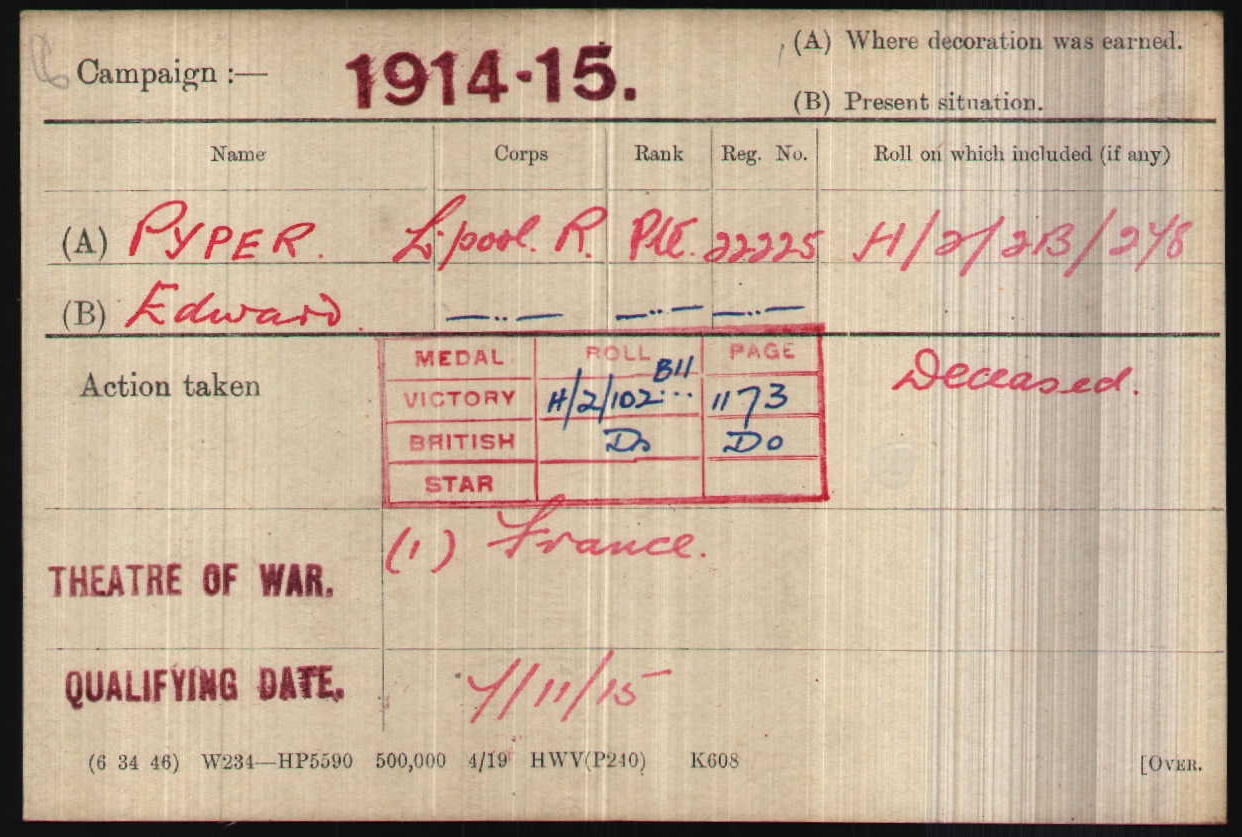 Campaign :— 1914-15. (A) Where decoration was earned.
(B) Present situation.
Name Corps Rank Reg. No. Roll on which included (if any)
(A) PYPER. L'pool. R. Pte. 22225 H/2/2B/248
(B) Edward. —„— —„— —„—
Action taken
MEDAL ROLL PAGE
VICTORY H/2/102 B11 1173
BRITISH Do Do
STAR
Deceased.
(1) France.
THEATRE OF WAR.
QUALIFYING DATE. 7/11/15
(6 34 46) W234—HP5590 500,000 4/19 HWV(P240) K608 [OVER.